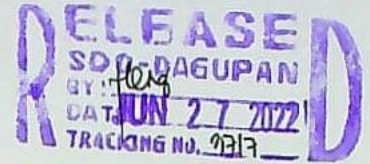 RELEASED
SDO-DAGUPAN
BY:
DATE JUN 27 2022
TRACKING NO.